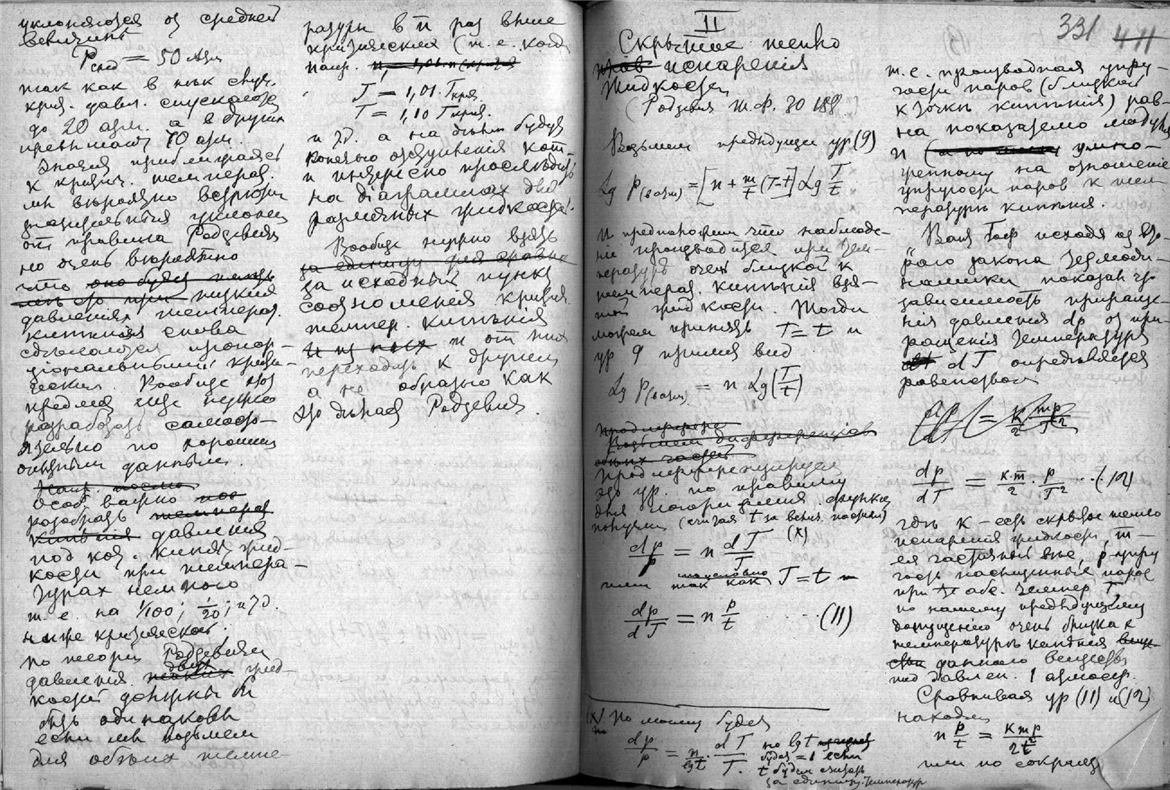 уклоняются от средней
величины
Pсред = 50 атм
так как в нек случ.
крит. давл. спускается
до 20 атм. а в других
превышает 70 атм.
к критич. температ.
мы вероятно встретим
от правила Радзевия
но очень вероятно
что
низких
давлениях температ.
кипения снова
сделаются пропор-
циональными крити-
ческим. Вообще этот
предмет еще нужно
разработать самосто-
ятельно по хорошим
опытным данным.
Особ. важно
разобрать
давления
под кот. кипят жид-
кости при темпера-
турах немного
т.е. на 1/100; 1/20; и т.д.
ниже критической.
по теории Радзевия
давления двух жид-
костей должны бы
быть одинаковы
если мы возьмем
для обеих темпе-
ратуры в n раз выше
критических (т.е. когда
напр.
T = 1,01 Tкрит.
T = 1,10 Tкрит.
и т.д. а на деле будут
конечно отступления кот.
и интересно проследить
на диаграммах двух
различных жидкостей.
Вообще нужно взять
за единицу для сравне
за исходный пункт
соотношения критич.
темпер. кипения
и из них и от них
переходить к другим
а не образно как
это делает Радзевия.
II
331 411
Скрытое тепло
испарения
жидкости
(Радзевия т.ф. 20 188
Возьмем предыдущее ур (9)
Lg P(возм) = [n + m/t (T-t)] Lg T/t
и предположим что наблюде-
ние производится при тем-
пературе очень близкой к
температ. кипения взя-
той жидкости. Тогда
можем принять T = t и
ур 9 примет вид
Lg P(возм) = n Lg (T/t)
Продифференцируем
это ур. по правилу
для логарифмич. функций
получим (считая t за велич. постоян)
dp/p = n dT/T (x)
или так как T = t
dp/dT = n p/t ...(11)
(x) По моему будет
dp/p = n/lgt · dT/T. но lg t
будет = 1 если
t будем считать
за единицу температур
т.е. производная упру-
гости паров (близкой
к точке кипения) рав-
на показателю модуля
n умно-
женному на отношение
упругости паров к тем-
пературе кипения.
Вант Гоф исходя из вто-
рого закона термоди-
намики показал что
зависимость прираще-
ния давления dp от при-
ращения температуры
dT определяется
равенством
dp/dT = k m/2 · p/T² ...(12)
где k – есть скрытое тепло
испарения жидкости, m –
ея частичный вес p упру-
гость насыщенных паров
при t абс. темпер T,
по нашему предыдущему
допущению очень близка к
температуре кипения
данного вещества
под давлен. 1 атмосф.
Сравнивая ур (11) и (12)
находим
n p/t = k m p/2t²
или по сокращ